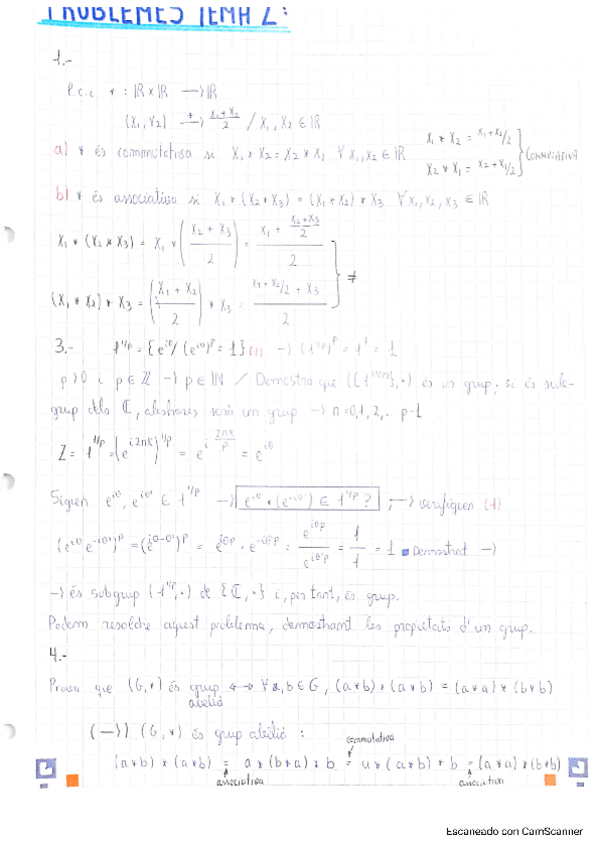 PROBLEMES TEMA 2:
1.-
l.c.i * : ℝ x ℝ → ℝ
(x₁, x₂) →* (x₁+x₂)/2 / x₁, x₂ ∈ ℝ
a) * és commutativa si x₁ * x₂ = x₂ * x₁ ∀ x₁, x₂ ∈ ℝ
x₁ * x₂ = x₁+x₂/2
x₂ * x₁ = x₂+x₁/2 } COMMUTATIVA
b) * és associativa si x₁ * (x₂ * x₃) = (x₁ * x₂) * x₃ ∀ x₁, x₂, x₃ ∈ ℝ
x₁ * (x₂ * x₃) = x₁ * ((x₂ + x₃)/2) = (x₁ + (x₂+x₃)/2)/2
≠
(x₁ * x₂) * x₃ = ((x₁ + x₂)/2) * x₃ = (x₁+x₂/2 + x₃)/2
3.- 1^(1/p) = {e^(iθ) / (e^(iθ))^p = 1} (1) → (1^(1/p))^p = 1¹ = 1
p > 0 i p ∈ ℤ → p ∈ ℕ / Demostra que ({1^(1/p)}, ·) és un grup; si és sub-
grup dels ℂ, aleshores serà un grup → n = 0,1,2,.. p-1
Z = 1^(1/p) = (e^(i2πk))^(1/p) = e^(i 2πk/p) = e^(iθ)
Siguen e^(iθ), e^(iθ') ∈ 1^(1/p) → e^(iθ) · (e^(-iθ')) ∈ 1^(1/p) ? ; → verifiquen (1)
(e^(iθ) e^(-iθ'))^p = (e^(i(θ-θ')))^p = e^(iθp) · e^(-iθ'p) = e^(iθp)/e^(iθ'p) = 1/1 = 1 ■ Demostrat →
→ és subgrup (1^(1/p), ·) de {ℂ, ·} i, per tant, és grup.
Podem resoldre aquest problema, demostrant les propietats d'un grup.
4.-
Prova que (G, *) és grup ↔ ∀ a, b ∈ G, (a*b) * (a*b) = (a*a) * (b*b)
abelià
(→) (G, *) és grup abelià :
commutativa
(a*b) * (a*b) = a * (b*a) * b = a * (a*b) * b = (a*a) * (b*b)
associativa associativa
Escaneado con CamScanner